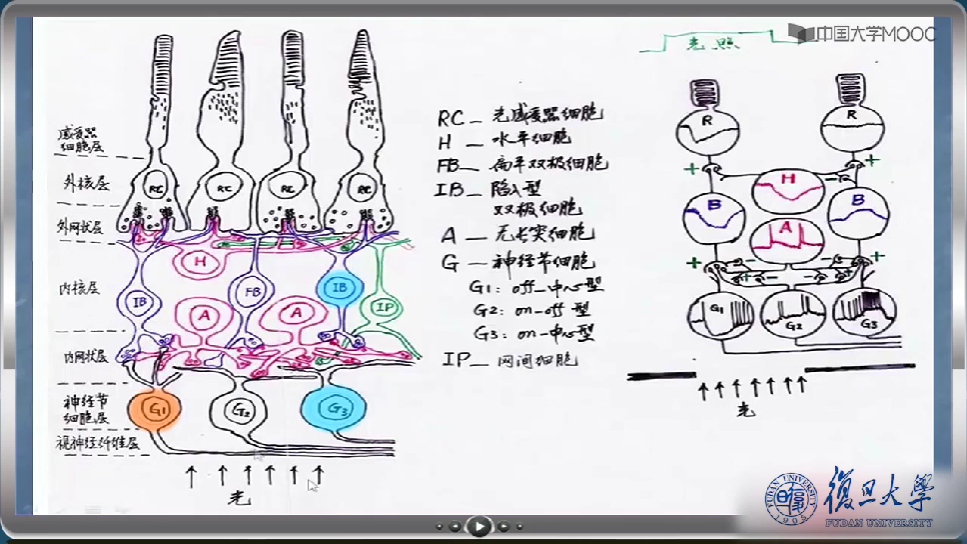 光照
中国大学MOOC
感受器
细胞层
外核层
外网状层
内核层
内网状层
神经节
细胞层
视神经纤维层
RC
RC
RC
RC
H
IB
FB
IB
IP
A
A
G1
G2
G3
光
RC— 光感受器细胞
H — 水平细胞
FB— 扁平双极细胞
IB— 陷入型
双极细胞
A — 无长突细胞
G — 神经节细胞
G1: off-中心型
G2: on-off型
G3: on-中心型
IP— 网间细胞
R
R
+
+
H
-
B
B
A
+
+
G1
G2
G3
光
復旦大學
FUDAN UNIVERSITY